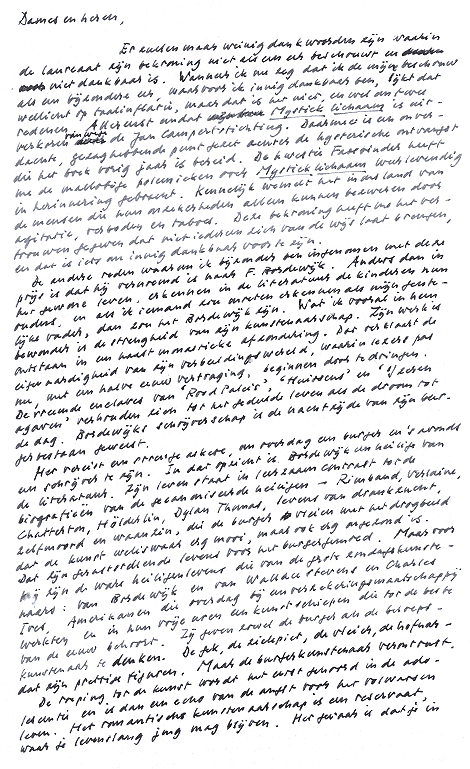 Dames en heren,
Er zullen maar weinig dankwoorden zijn waarin
de laureaat zijn bekroning niet als een eer beschouwt en
niet dankbaar is. Wanneer ik nu zeg dat ik de mijne beschouw
als een bijzondere eer, waarvoor ik innig dankbaar ben, lijkt dat
wellicht op taalinflatie, maar dat is het niet, en wel om twee
redenen. Allereerst omdat Mystiek lichaam is uit-
verkoren vanwege de Jan Campertstichting. Daarmee is een onver-
dachte, gezaghebbende punt gezet achter de hysterische ontvangst
die het boek vorig jaar is bereid. De kwestie Fassbinder heeft
me de mallotige polemieken over Mystiek lichaam weer levendig
in herinnering gebracht. Kennelijk wemelt het in ons land van
de mensen die hun onzekerheden alleen kunnen bezweren door
agitatie, verboden en taboes. Deze bekroning heeft me het ver-
trouwen gegeven dat niet iedereen zich van de wijs laat brengen,
en dat is iets om innig dankbaar voor te zijn.
De andere reden waarom ik bijzonder ben ingenomen met deze
prijs is dat hij vernoemd is naar F. Bordewijk. Anders dan in
het gewone leven, erkennen in de literatuur de kinderen hun
ouders, en als ik iemand zou moeten erkennen als mijn geeste-
lijke vader, dan zou het Bordewijk zijn. Wat ik vooral in hem
bewonder is de strengheid van zijn kunstenaarschap. Zijn werk is
ontstaan in een haast monastieke afzondering. Dat verklaart de
eigenaardigheid van zijn verbeeldingswereld, waarin lezers pas
nu, met een halve eeuw vertraging, beginnen door te dringen.
De vreemde enclaves van 'Rood Paleis', 'Huissens' en 'IJzeren
agaven' verhouden zich tot het geleide leven als de droom tot
de dag. Bordewijks schrijverschap is de nachtzijde van zijn bur-
gerbestaan geweest.
Het vereist een strenge askese, om overdag een burger en 's avonds
een schrijver te zijn. In dat opzicht is Bordewijk een heilige van
de literatuur. Zijn leven staat in leerzaam contrast tot de
biografieën van de gecanoniseerde heiligen – Rimbaud, Verlaine,
Chatterton, Hölderlin, Dylan Thomas, levens van drankzucht,
zelfmoord en waanzin, die de burger vleien met het droogbeeld
dat de kunst weliswaar erg mooi, maar ook erg ongezond is.
Dat zijn geraffordiende levens voor het burgerfatsoen. Maar voor
mij zijn de ware heiligenlevens die van de grote zondagskunste-
naars: van Bordewijk en van Wallace Stevens en Charles
Ives, Amerikanen die overdag bij een verzekeringsmaatschappij
werkten en in hun vrije uren een kunst schiepen die tot de beste
van de eeuw behoort. Zij geven zowel de burger als de beroeps-
kunstenaar te denken. De gek, de zielepiet, de vleier, de hofnar –
dat zijn prettige figuren. Maar de burgerkunstenaar verontrust.
De roeping tot de kunst wordt het eerst gehoord in de ado-
lescentie en is dan een echo van de angst voor het volwassen
leven. Het romantische kunstenaarschap is een reservaat,
waar je levenslang jong mag blijven. Het gevaar is dat je in